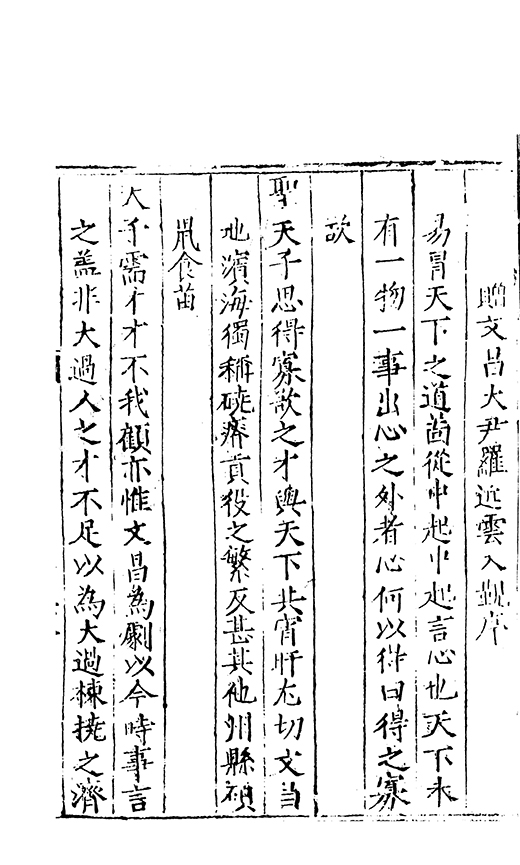 贈文昌大尹羅近雲入覲序
易冒天下之道茵從中起中起言心也天下未
有一物一事出心之外者心何以徃曰得之寡
欲
聖天子思得寡欲之才與天下共宵旰尤切文昌
地濱海獨稱磽瘠貢役之繁反甚其他州縣碩
鼠食苗
天子需才才不我顧亦惟文昌為劇以今時事言
之盖非大過人之才不足以為大過棟撓之濟